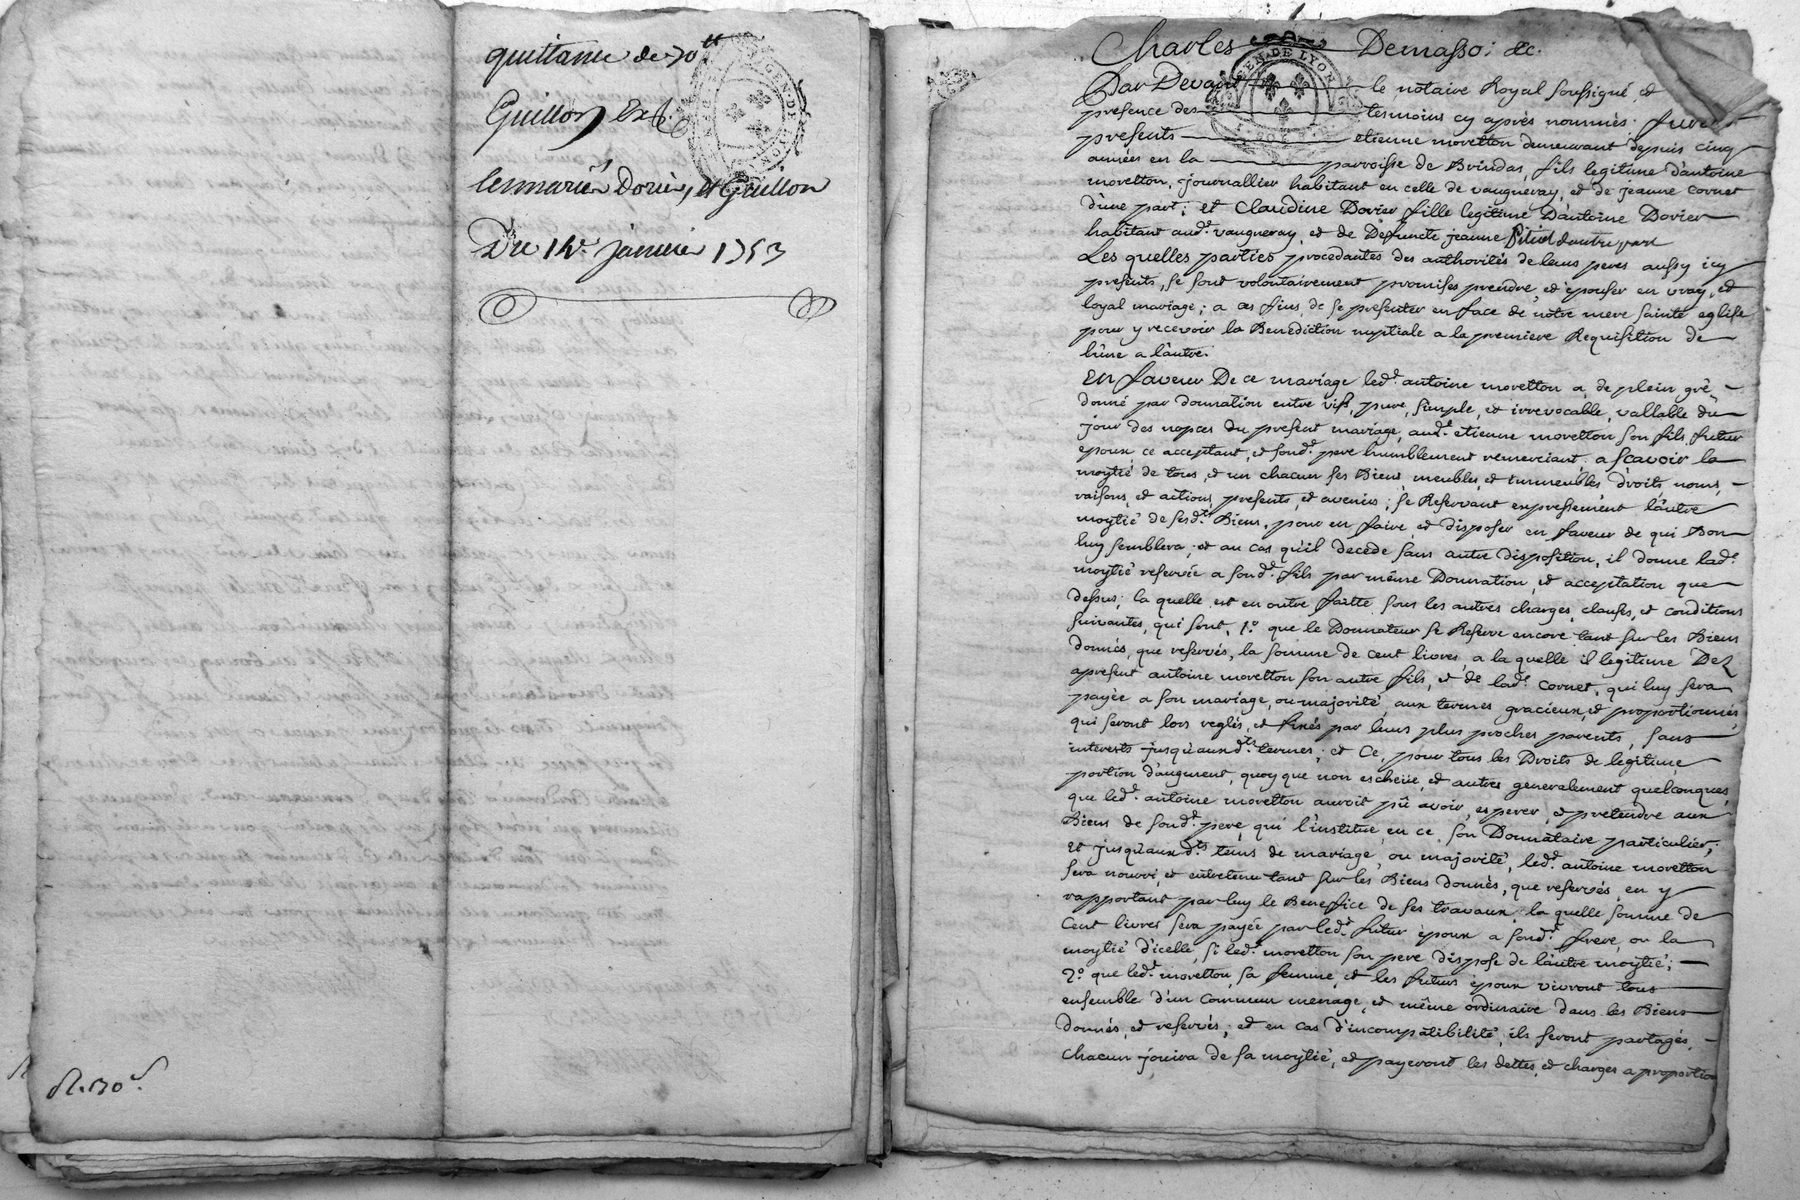 quittance de 70tt
Guillon
Dorier, et Guillon
Du 14e. janvier 1753
Charles Demasso; &c.
Par Devant le notaire Royal soussigné, et
presence des tesmoins cy après nommés: furent
presents etienne moretton demeurant depuis cinq
années en la parroisse de Brindas, fils legitime d'antoine
moretton, journallier habitant en celle de vaugneray, et de jeanne cornet
d'une part; et Claudine Dorier fille legitime D'antoine Dorier
habitant aud. vaugneray, et de Deffuncte jeanne d'autre part
Les quelles parties procedantes des authorités de leurs peres aussy icy
presents, se sont volontairement promises prendre, et épouser en vray, et
loyal mariage; a ces fins de se presenter en face de nôtre mere sainte eglise
pour y recevoir la Benediction nuptiale a la premiere Requisition de
l'une a l'autre.
En faveur De ce mariage led. antoine moretton a de plein gré
donné par donnation entre vifs, pure, simple, et irrevocable, vallable du
jour des nopces du present mariage, aud. etienne moretton son fils, futur
epoux ce acceptant, et sond. pere humblement remerciant; a scavoir la
moytié de tous, et un chacun ses Biens meubles, et immeubles droits, noms,
raisons, et actions, presents, et avenirs; se Reservant expressément l'autre
moytié de sesd.ts Biens, pour en faire, et disposer en faveur de qui Bon
luy semblera; et au cas qu'il decede sans autre disposition, il donne lad.
moytié reservée a sond. fils par même Donnation, et acceptation que
dessus; la quelle est en outre faitte sous les autres charges, clauses, et conditions
suivantes, qui sont, 1.o que le Donnateur se Reserve encore tant sur les Biens
donnés, que reservés, la somme de cent livres, a la quelle il legitime Dez
apresent antoine moretton son autre fils, et de lad. cornet, qui luy sera
payée a son mariage, ou majorité, aux termes gracieux, et proportionnés,
qui seront lors reglés, et fixés par leurs plus proches parents, sans
interests jusqu'auxd.ts termes; et Ce, pour tous les Droits de legitime,
portion d'augment, quoy que non escheüe, et autres generalement quelconques,
que led. antoine moretton auroit pû avoir, esperer, et pretendre aux
Biens de sond. pere, qui l'institue en ce son Donnataire particulier;
et jusqu'auxd.ts tems de mariage, ou majorité, led. antoine moretton
sera nourri, et entretenu tant sur les Biens donnés, que reservés, en y
rapportant par luy le Benefice de ses travaux; la quelle somme de
Cent livres sera payée par led. futur époux a sond. frere, ou la
moytié d'icelle, si led. moretton son pere dispose de l'autre moytié;
2.o que led. moretton, sa femme, et les futurs époux vivront tous
ensemble d'un commun menage, et même ordinaire dans les Biens
donnés, et reservés; et en cas d'incompatibilité, ils seront partagés,
Chacun jouira de sa moytié, et payeront les dettes, et charges a proportion